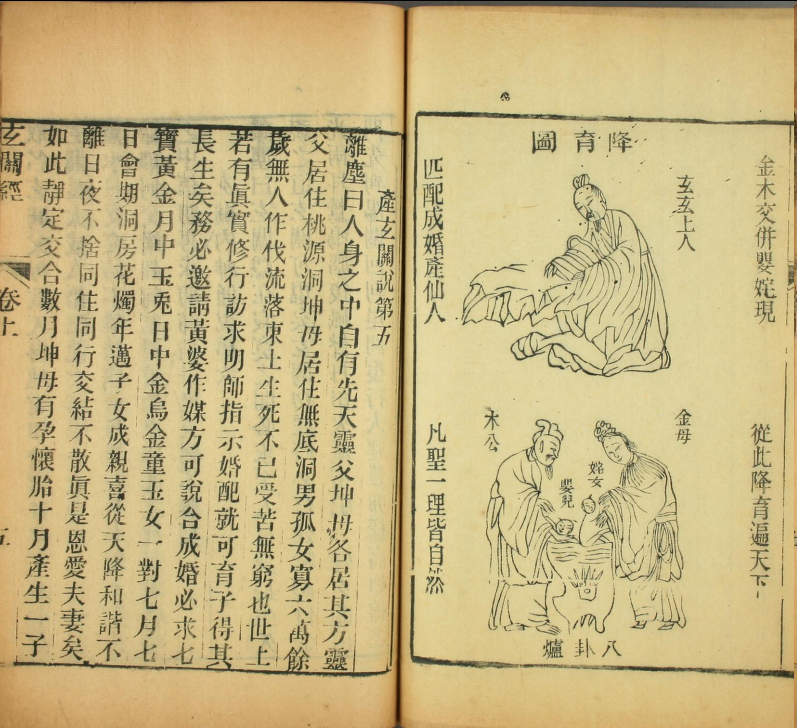 降育圖
金木交併嬰姹現
從此降育遍天下
玄玄上人
匹配成婚產仙人
金母
姹女
嬰兒
木公
凡聖一理皆自然
八卦爐
產玄關說第五
離塵曰人身之中自有先天靈父坤母各居其方靈
父居住桃源洞坤母居住無底洞男孤女寡六萬餘
歲無人作伐流落東土生死不已受苦無窮也世上
若有眞實修行訪求明師指示婚配就可育子得其
長生矣務必邀請黃婆作媒方可說合成婚必求七
寶黃金月中玉兎日中金烏金童玉女一對七月七
日會期洞房花燭年邁子女成親喜從天降和諧不
離日夜不捨同住同行交結不散眞是恩愛夫妻矣
如此靜定交合數月坤母有孕懷胎十月產生一子
玄關經
卷上
五